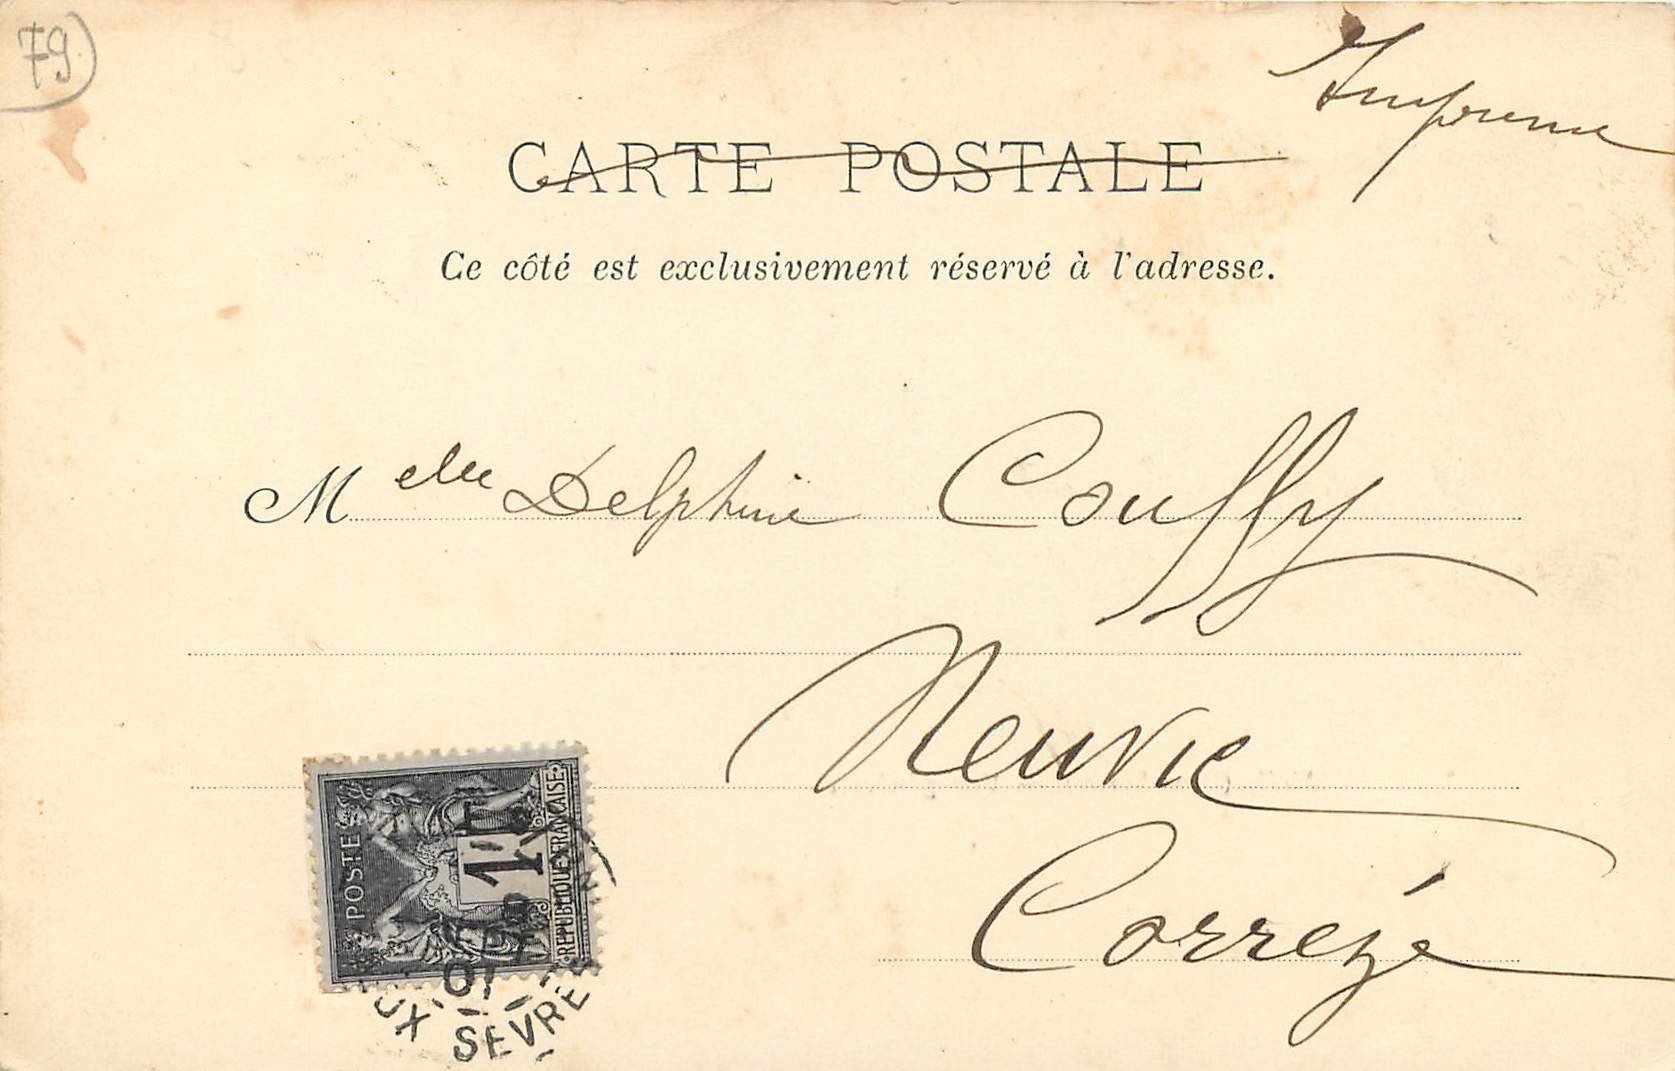 79
Imprimé
CARTE POSTALE
Ce côté est exclusivement réservé à l'adresse.
Melle Delphine Couffy
Neuvic
Corrèze
POSTE
1
RÉPUBLIQUE FRANÇAISE
01
SEVRE